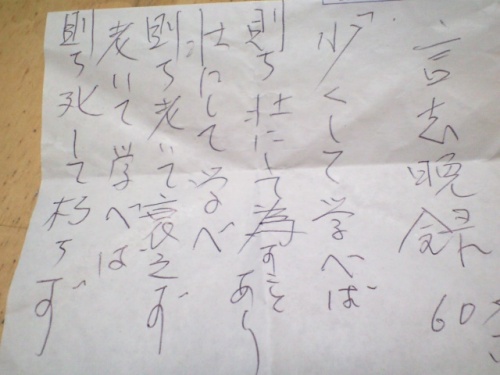 言志晩録 60
少くして学べば
則ち壮にして為すことあり
壮にして学べ
則ち老いて衰えず
老いて学べば
則ち死して朽ちず